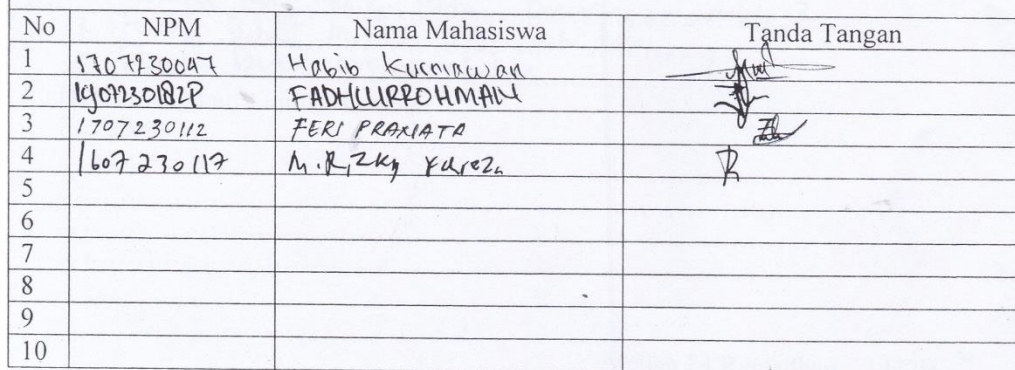 No NPM Nama Mahasiswa Tanda Tangan
1 1707230047 Habib Kurniawan
2 1907230182P FADHLURROHMAN
3 1707230112 FERI PRANATA
4 1607230117 M. Rizky
5
6
7
8
9
10